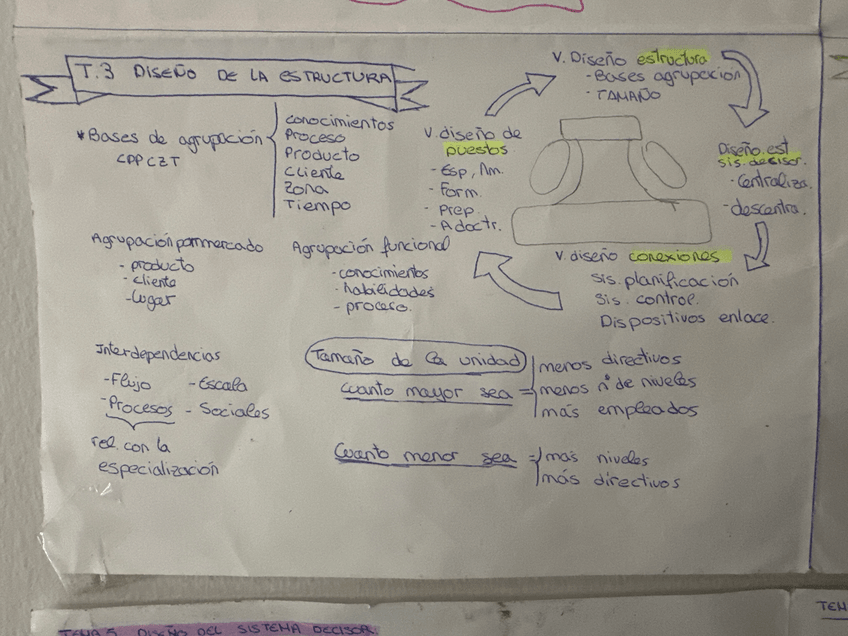 T.3 DISEÑO DE LA ESTRUCTURA
* Bases de agrupación
CPPCZT
conocimientos
Proceso
Producto
Cliente
Zona
Tiempo
V. diseño de
puestos.
- Esp, Am.
- Form.
- Prep.
- Adoctr.
V. Diseño estructura
- Bases agrupación
- TAMAÑO
Diseño est
sis. decisor.
- Centraliza.
- descentra.
V. diseño conexiones
sis. planificación
sis. control.
Dispositivos enlace.
Agrupación por mercado
- producto
- cliente
- lugar
Agrupación funcional
- conocimientos
- habilidades
- proceso.
Interdependencias
- Flujo - Escala
- Procesos - Sociales
rel. con la
especialización
Tamaño de la unidad
cuanto mayor sea =
menos directivos
menos nº de niveles
más empleados
Cuanto menor sea =
más niveles
más directivos
TEMA 5 DISEÑO DEL SISTEMA DECISOR